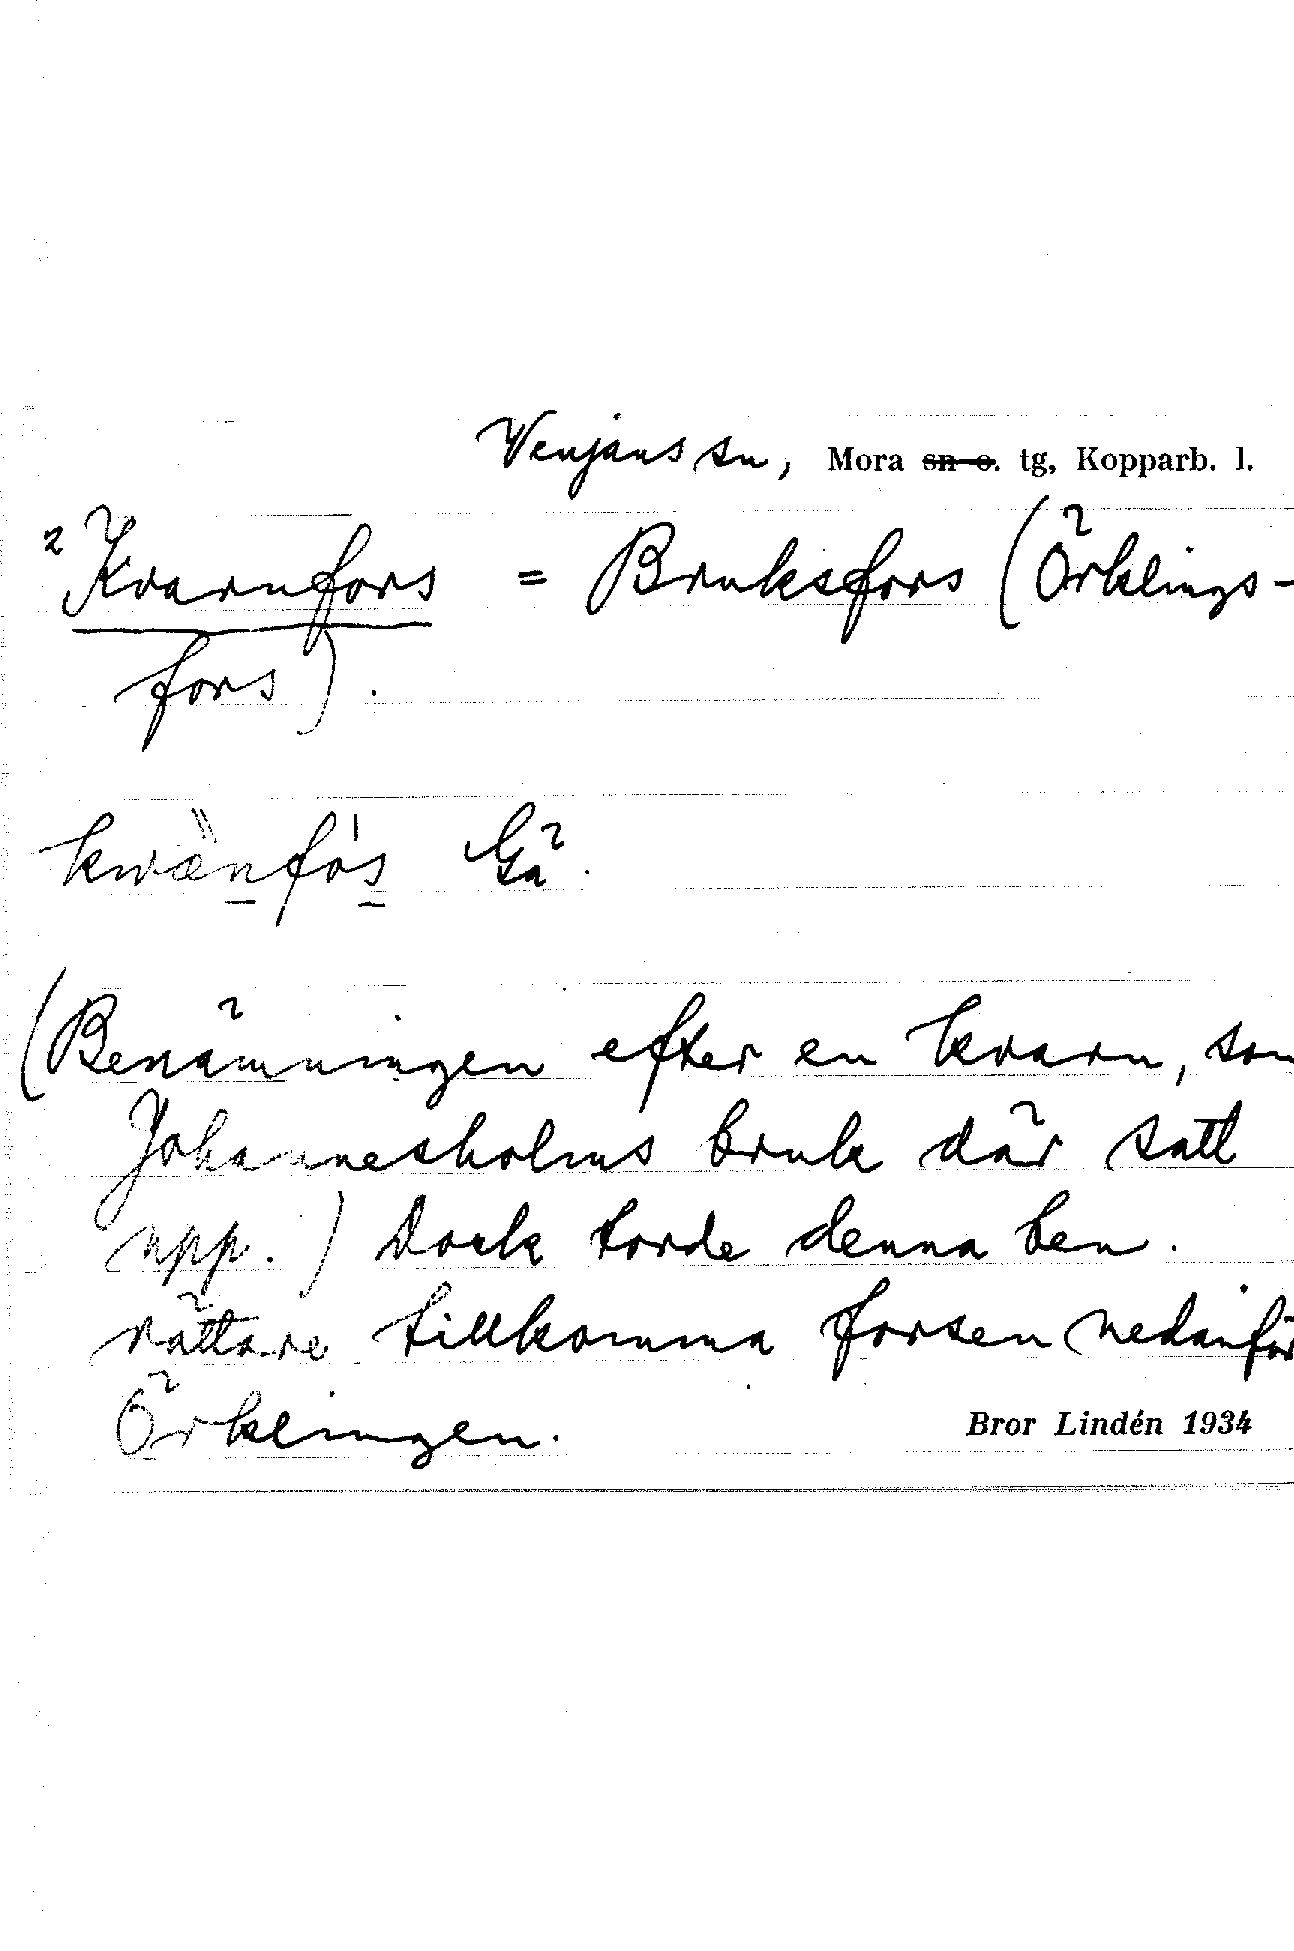 Venjans sn, Mora sn o. tg, Kopparb. l.
2 Kvarnfors = Bruksfors (Örklings-
fors).
kwänfós Gä.
(Benämningen efter en kvarn, som
Johannesholms bruk där satt
upp.) Dock torde denna ben.
rättare tillkomma forsen nedanför
Örklingen.
Bror Lindén 1934